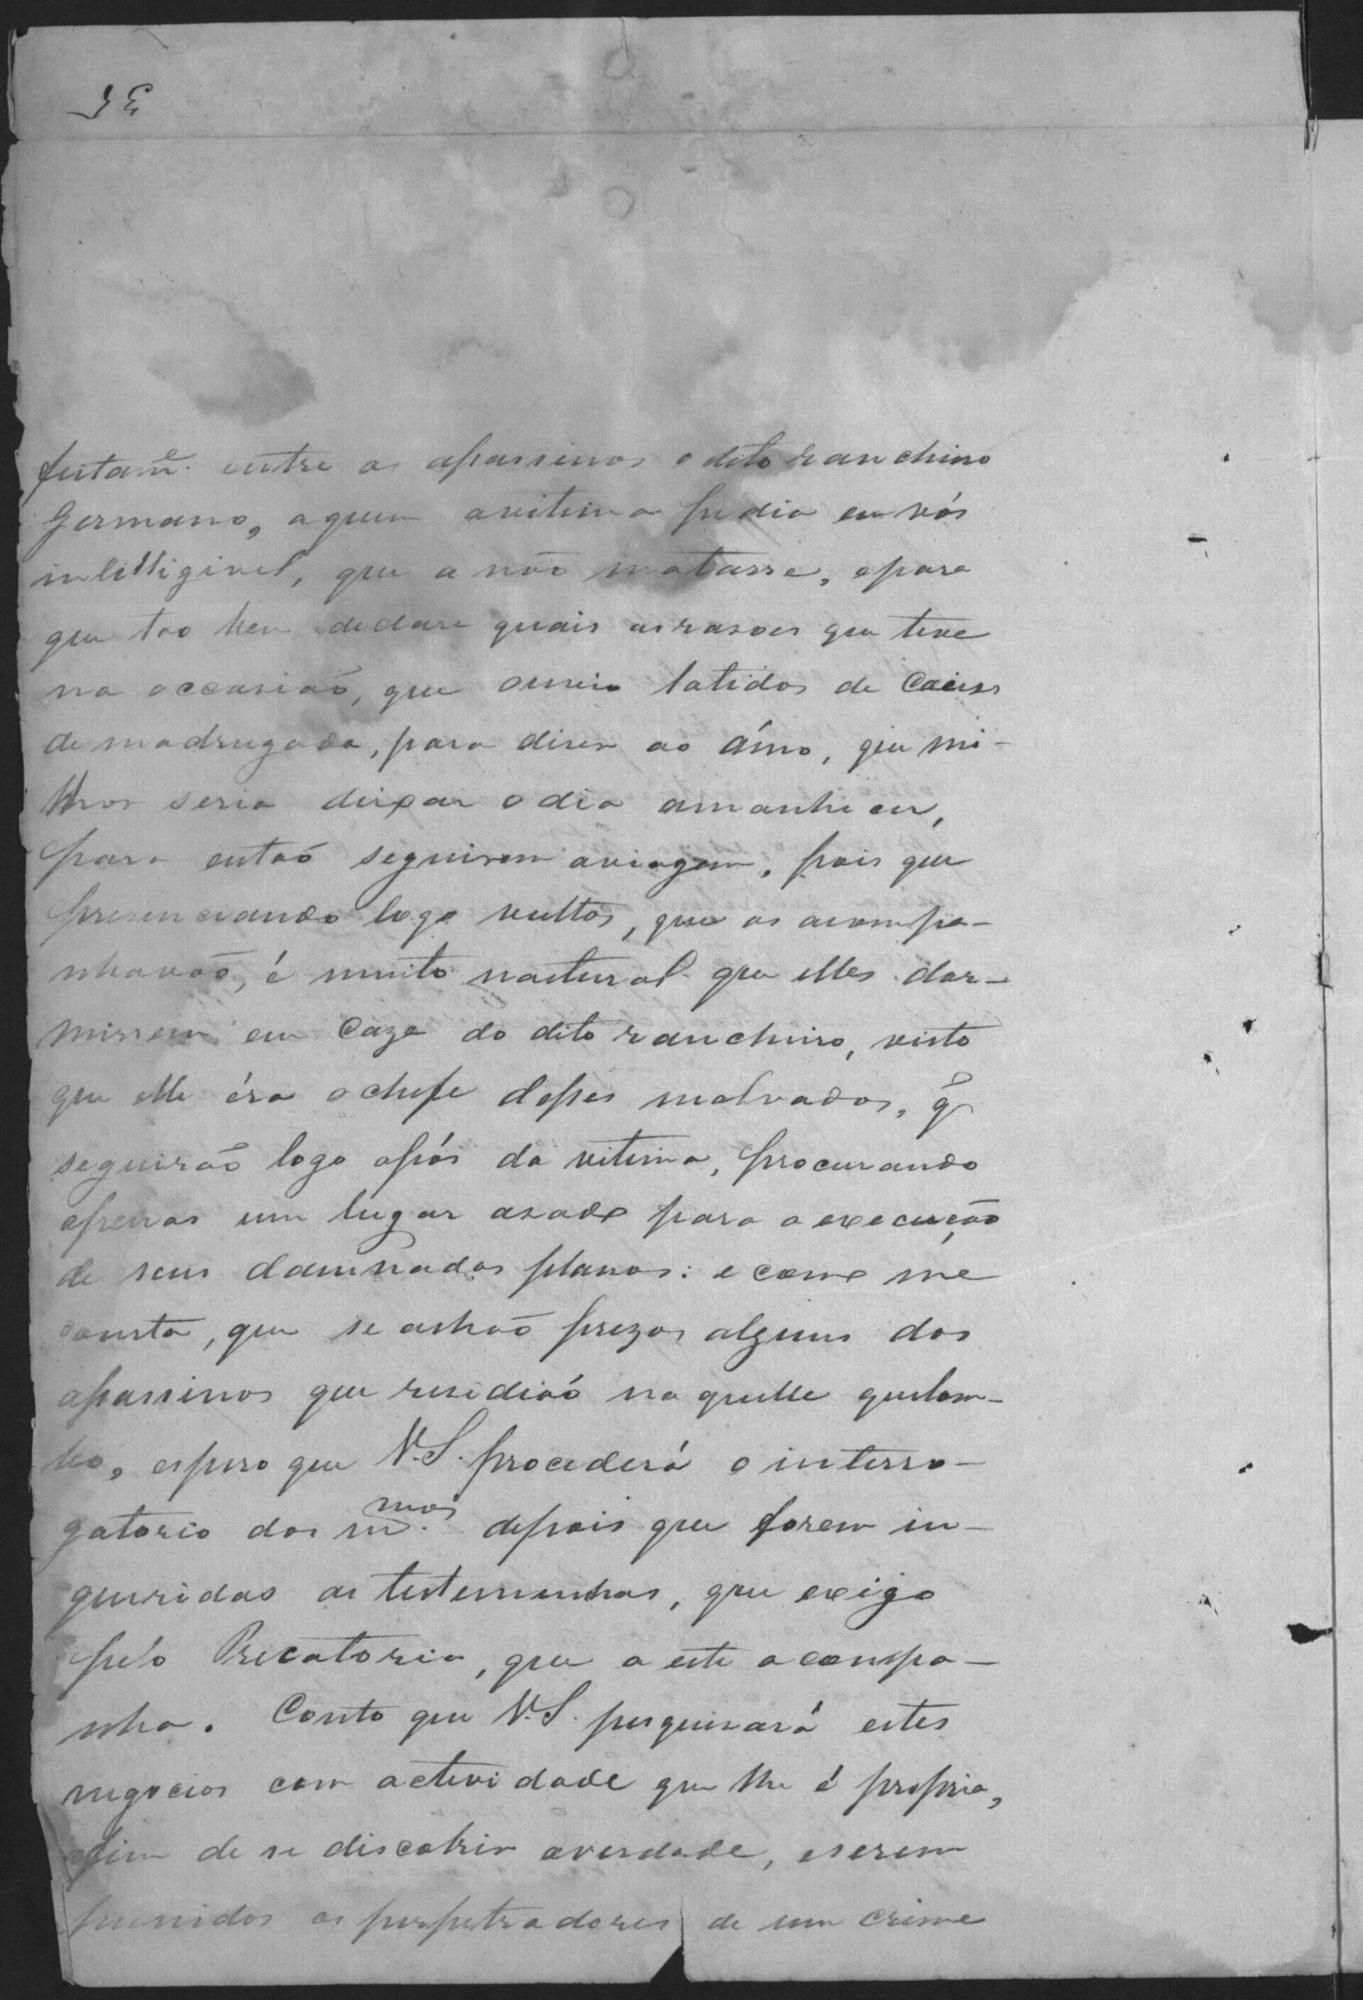 feitam.e entre os assassinos o dito rancheiro
Germano, aquem avitima pedia em vós
intilligivel, que a não matasse, epara
que tão bem declare quais asrasoes que teve
na occasiaõ, que ouvio latidos de Caiñs
de madrugada, para diser ao ámo, que mi-
lhor seria deixar odia amanhicer,
para entaõ seguirem aviagem, pois que
presenciando logo vultos, que os acompa-
nhavaõ, é muito natural que elles dor-
missem em Caza do dito rancheiro, visto
que elle éra ochefe desses malvados, q̃
seguiraõ logo após da vitima, procurando
apenas um lugar azado para a execução
de seus damnados planos: e como me
consta, que se achaõ prezos alguns dos
assassinos que residiaõ na quelle quilom-
bo, espero que V.S. procederá o interro-
gatorio dos m.mos depois que forem in-
queridas as testemunhas, que exigo
pélo Precatorio, que a este acompa-
nha. Conto que V.S. pesquisará estes
negocios com actividade que lhe é propria,
afim de se discobrir averdade, eserem
punidos os perpetradores de um crime